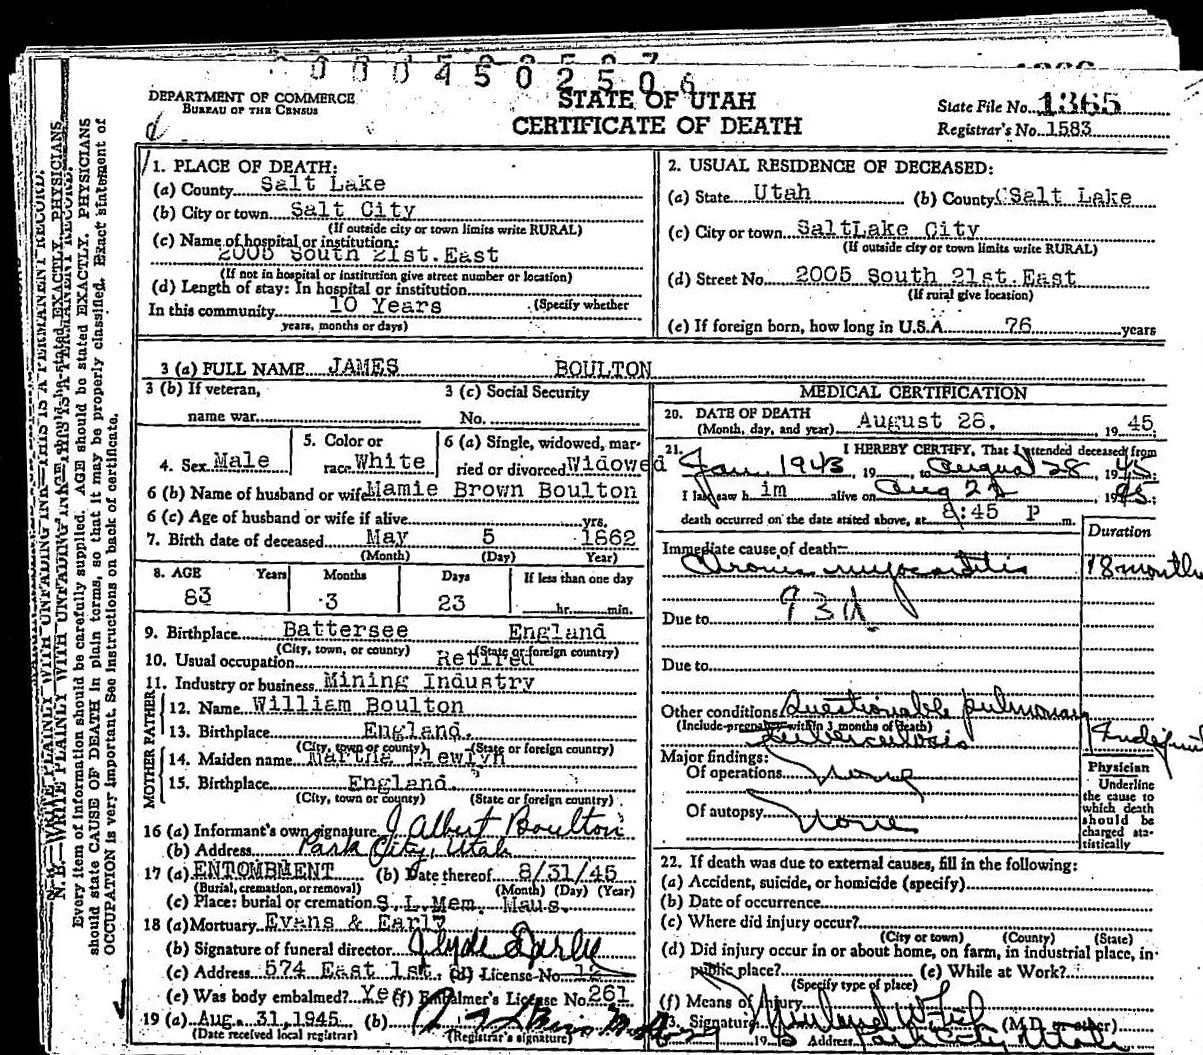 0 0 0 4 5 0 2 5 0 6
DEPARTMENT OF COMMERCE
BUREAU OF THE CENSUS
STATE OF UTAH
CERTIFICATE OF DEATH
State File No. 1365
Registrar's No. 1583
N. B.—WRITE PLAINLY WITH UNFADING INK—THIS IS A PERMANENT RECORD.
Every item of information should be carefully supplied. AGE should be stated EXACTLY. PHYSICIANS
should state CAUSE OF DEATH in plain terms, so that it may be properly classified. Exact statement of
OCCUPATION is very important. See instructions on back of certificate.
1. PLACE OF DEATH:
(a) County Salt Lake
(b) City or town Salt City
(If outside city or town limits write RURAL)
(c) Name of hospital or institution:
2005 South 21st. East
(If not in hospital or institution give street number or location)
(d) Length of stay: In hospital or institution
(Specify whether
In this community 10 Years
years, months or days)
2. USUAL RESIDENCE OF DECEASED:
(a) State Utah (b) County Salt Lake
(c) City or town SaltLake City
(If outside city or town limits write RURAL)
(d) Street No. 2005 South 21st. East
(If rural give location)
(e) If foreign born, how long in U.S.A. 76 years
3 (a) FULL NAME JAMES BOULTON
3 (b) If veteran,
name war
3 (c) Social Security
No.
4. Sex Male
5. Color or
race White
6 (a) Single, widowed, mar-
ried or divorced Widowed
6 (b) Name of husband or wife Mamie Brown Boulton
6 (c) Age of husband or wife if alive yrs.
7. Birth date of deceased May 5 1862
(Month) (Day) Year)
8. AGE Years Months Days If less than one day
83 3 23 hr. min.
9. Birthplace Battersee England
(City, town, or county) (State or foreign country)
10. Usual occupation Retired
11. Industry or business Mining Industry
FATHER
12. Name William Boulton
13. Birthplace England.
(City, town or county) (State or foreign country)
MOTHER
14. Maiden name Martha Llewlyn
15. Birthplace England.
(City, town or county) (State or foreign country)
16 (a) Informant's own signature J Albert Boulton
(b) Address Park City, Utah
17 (a) ENTOMBMENT (b) Date thereof 8/31/45
(Burial, cremation, or removal) (Month) (Day) (Year)
(c) Place: burial or cremation S. L. Mem. Maus.
18 (a) Mortuary Evans & Early
(b) Signature of funeral director
(c) Address 574 East 1st. (d) License No. 12
(e) Was body embalmed? Yes (f) Embalmer's License No. 261
19 (a) Aug. 31, 1945 (b)
(Date received local registrar) (Registrar's signature)
MEDICAL CERTIFICATION
20. DATE OF DEATH
(Month, day, and year) August 28, 19 45
21. I HEREBY CERTIFY, That I attended deceased from
Jan. 1943, 19 to August 28, 19 45;
I last saw h im alive on Aug 28, 19 45;
death occurred on the date stated above, at 8:45 P m.
Duration
Immediate cause of death:
Chronic myocarditis 18 months
Due to 93d
Due to
Other conditions Questionable pulmonary
(Include pregnancy within 3 months of death)
tuberculosis
Major findings:
Of operations None
Of autopsy None
Physician
Underline
the cause to
which death
should be
charged sta-
tistically
22. If death was due to external causes, fill in the following:
(a) Accident, suicide, or homicide (specify)
(b) Date of occurrence
(c) Where did injury occur?
(City or town) (County) (State)
(d) Did injury occur in or about home, on farm, in industrial place, in
public place? (e) While at Work?
(Specify type of place)
(f) Means of Injury
23. Signature (M.D. or other)
19 Address Park City Utah